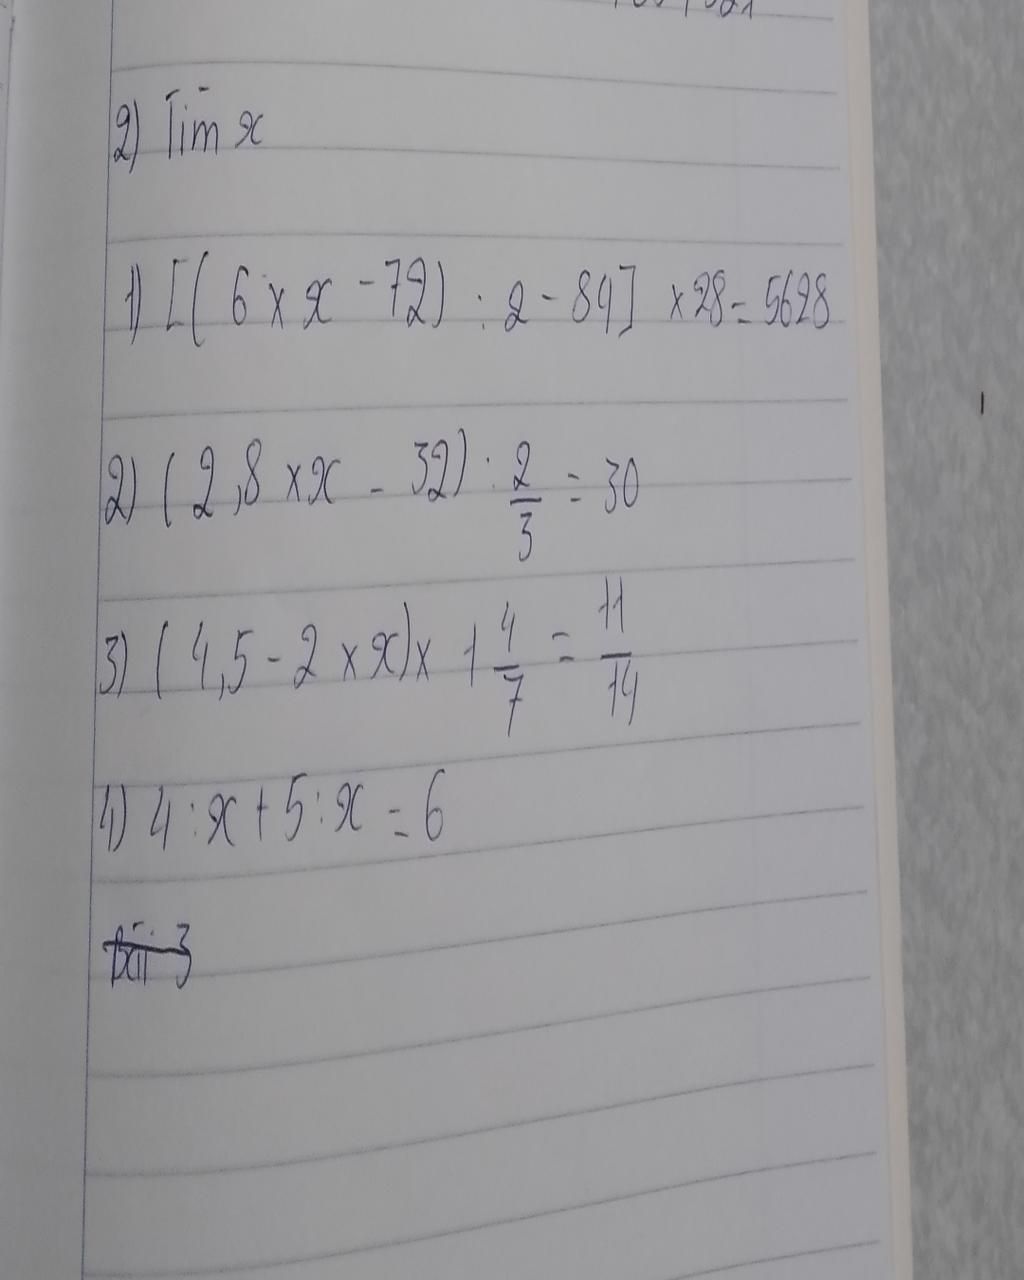 2) Tìm x
1) [( 6 × x - 72) : 2 - 84] × 28 = 5628
2) ( 2,8 × x - 32) : 2/3 = 30
3) ( 4,5 - 2 × x) × 1 4/7 = 11/14
4) 4 : x + 5 : x = 6
bài 3